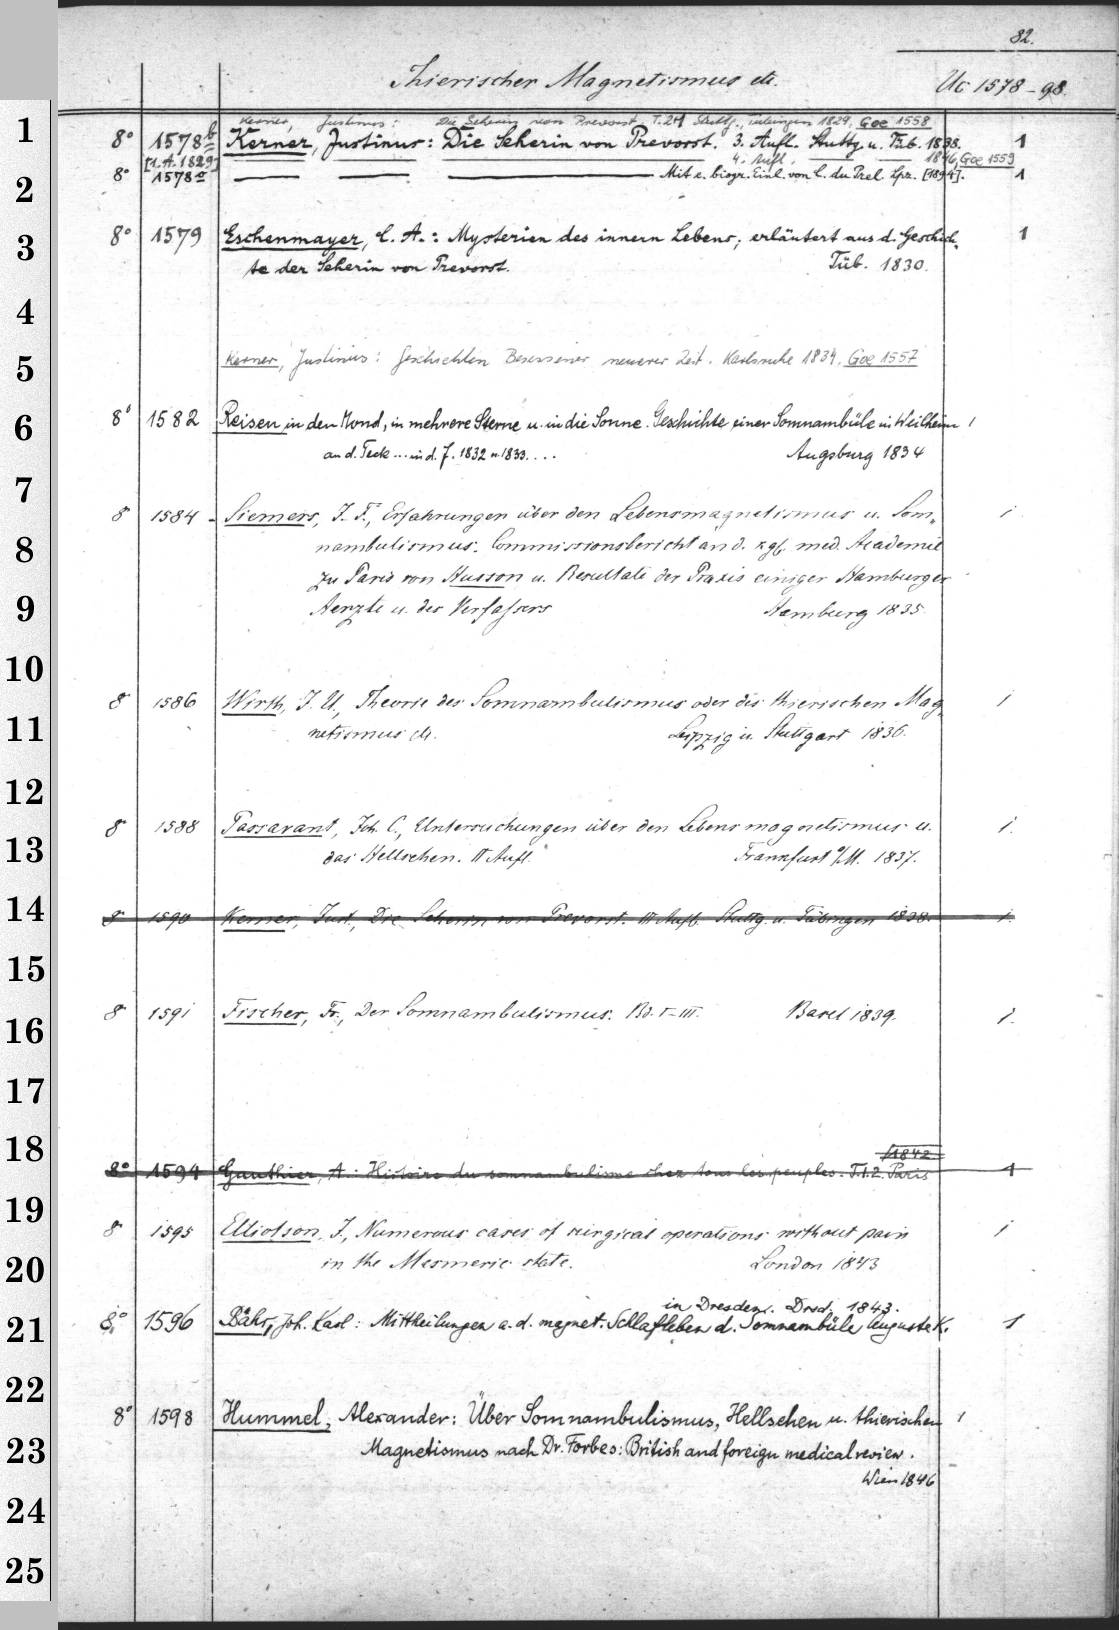 82.
Thierischer Magnetismus etc. Uc 1578-98.
Kerner, Justinus: Die Seherin von Prevorst. T. 2 Stuttg., Tübingen 1829. Goe 1558
1 8° 1578b Kerner, Justinus: Die Seherin von Prevorst. 3. Aufl. Stuttg. u. Tüb. 1838. 1
[1.A.1829] 4. Aufl. 1846, Goe 1559
2 8° 1578a Mit e. biogr. Einl. von C. du Prel. Lpz. [1894]. 1
3 8° 1579 Eschenmayer, C. A.: Mysterien des innern Lebens; erläutert aus d. Geschich-
te der Seherin von Prevorst. Tüb. 1830. 1
4
5 Kerner, Justinus: Geschichten Besessener neuerer Zeit. Karlsruhe 1834. Goe 1557
6 8° 1582 Reisen in den Mond, in mehrere Sterne u. in die Sonne. Geschichte einer Somnambüle in Weilheim 1
an d. Teck ... in d. J. 1832 u. 1833. ... Augsburg 1834
7
8° 1584 Siemers, J. F., Erfahrungen über den Lebensmagnetismus u. Som- 1
8 nambulismus. Commissionsbericht an d. kgl. med. Academie
zu Paris von Husson u. Resultate der Praxis einiger Hamburger
9 Aerzte u. des Verfassers Hamburg 1835
10
8° 1586 Wirth, J. U., Theorie des Somnambulismus oder des thierischen Mag- 1
11 netismus etc. Leipzig u. Stuttgart 1836.
12
8° 1588 Passavant, Joh. C., Untersuchungen über den Lebensmagnetismus u. 1.
13 das Hellsehen. II Aufl. Frankfurt a/M. 1837.
14 8° 1590 Kerner, Just., Die Seherin von Prevorst. III Aufl. Stuttg. u. Tübingen 1838. 1.
15
16 8° 1591 Fischer, Fr., Der Somnambulismus. Bd. I-III. Basel 1839. 1.
17
1842
18 8° 1594 Gauthier, A.: Histoire du somnambulisme chez tous les peuples. T.1.2. Paris 1
19 8° 1595 Elliotson, J., Numerous cases of surgical operations without pain 1
20 in the Mesmeric state. London 1843
in Dresden. Dresd. 1843.
21 8° 1596 Bähr, Joh. Karl: Mittheilungen a. d. magnet. Schlafleben d. Somnambüle Auguste K. 1
22
8° 1598 Hummel, Alexander: Über Somnambulismus, Hellsehen u. thierischen 1
23 Magnetismus nach Dr. Forbes: British and foreign medical review.
Wien 1846
24
25